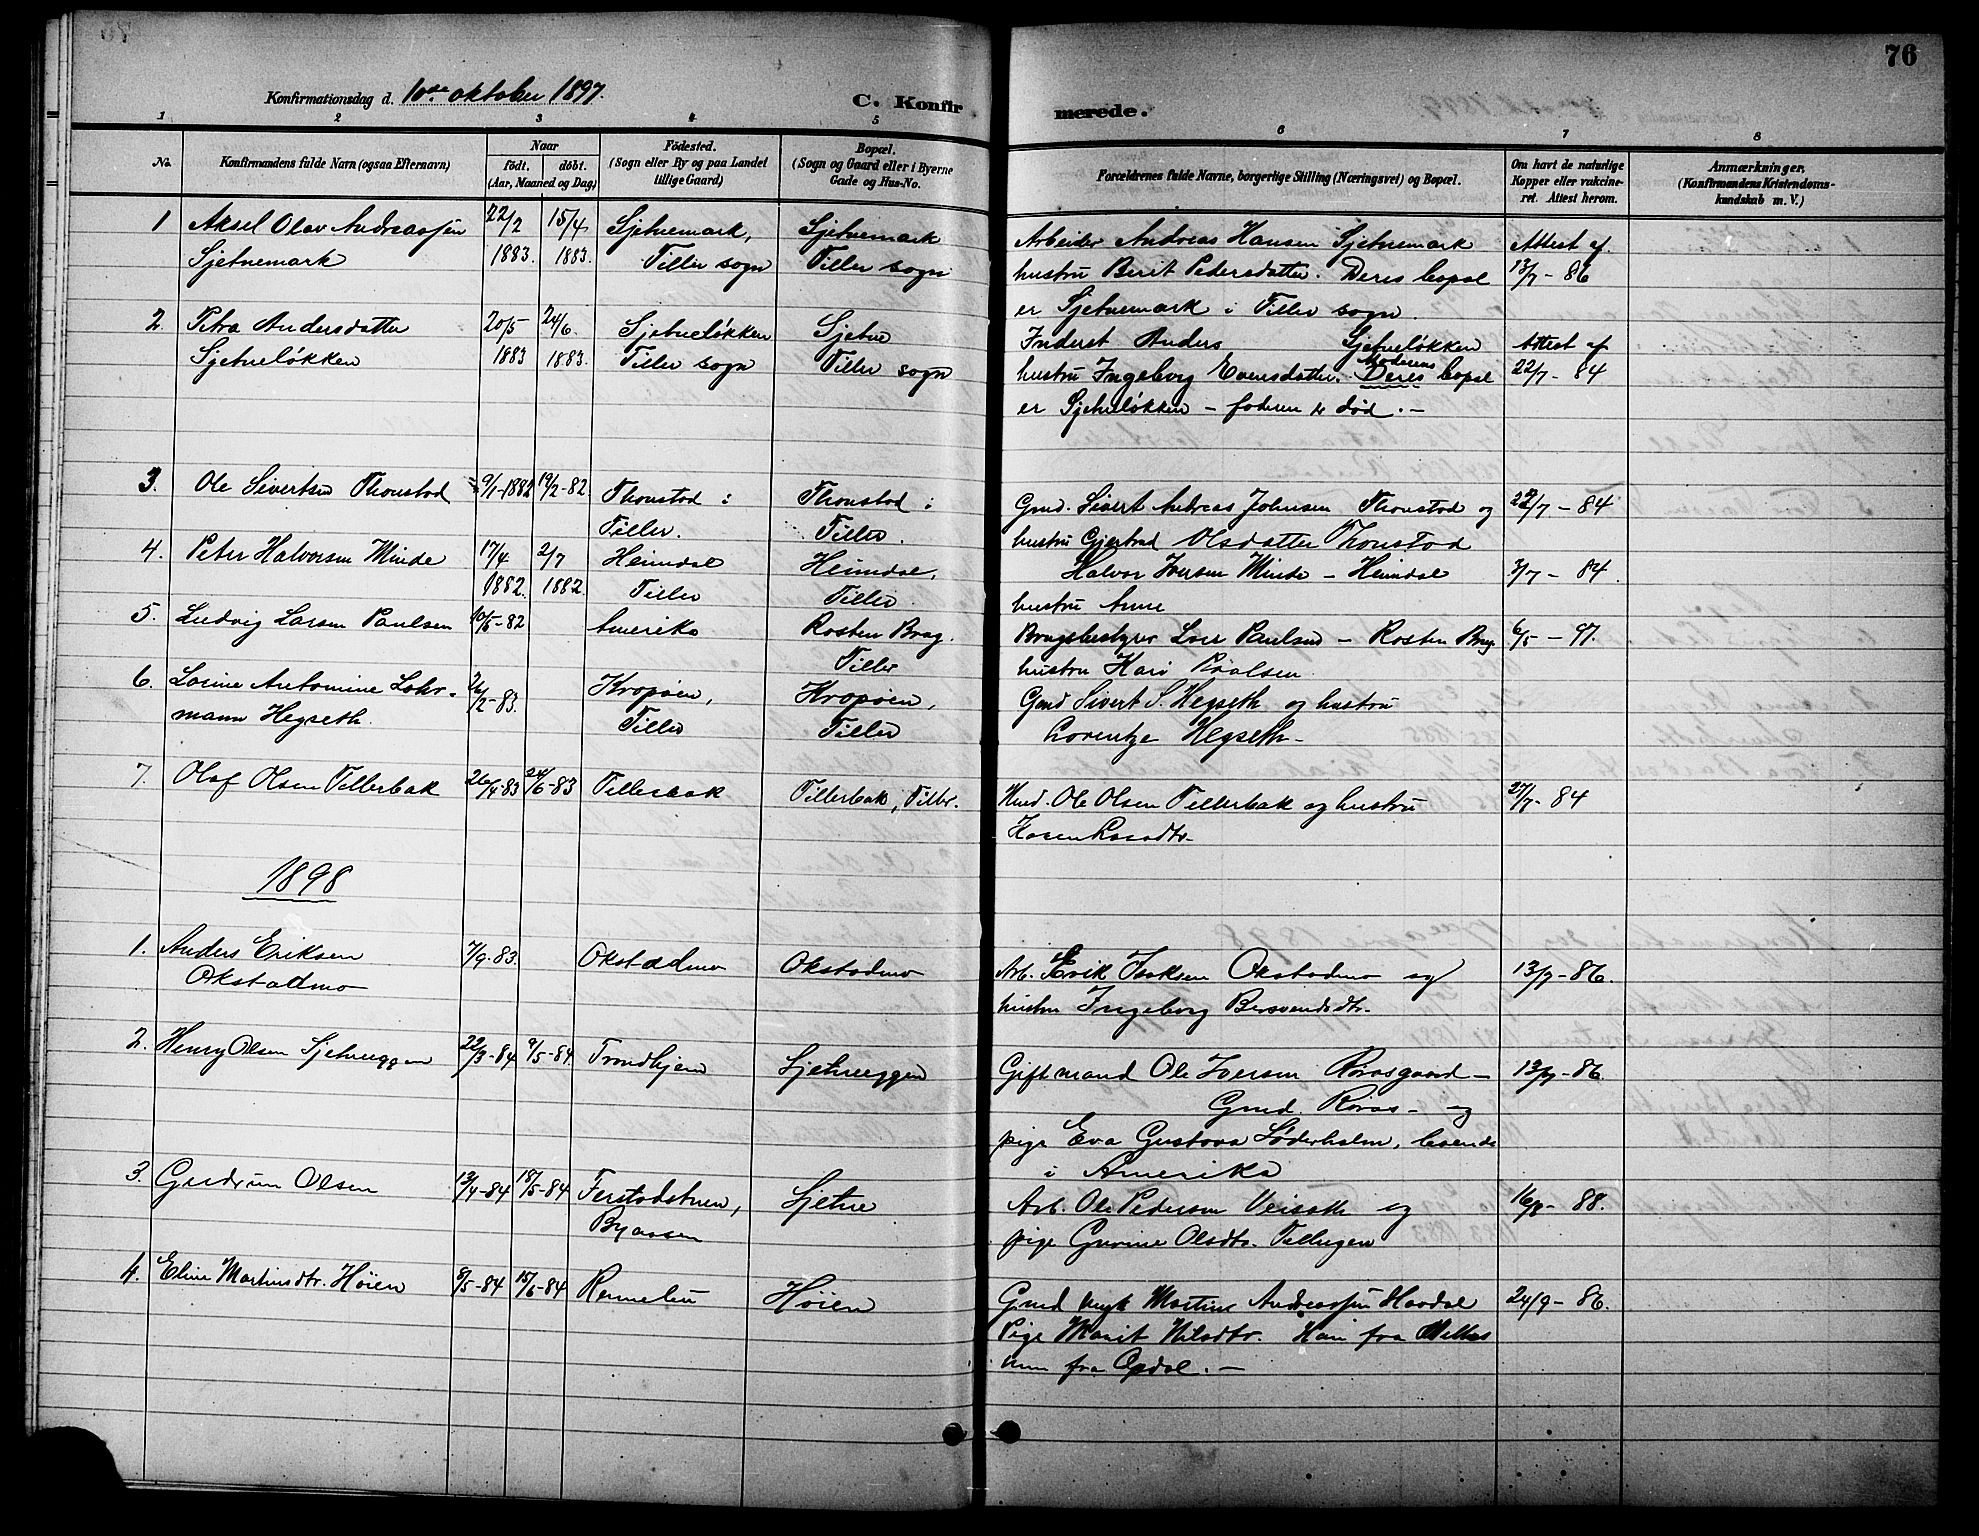 76
Konfirmationsdag d. 10de oktober 1897.
C. Konfirmerede.
1 2 3 4 5 6 7 8
No.
Konfirmandens fulde Navn (ogsaa Efternavn)
Naar
født. døbt.
(Aar, Maaned og Dag)
Fødested.
(Sogn eller By og paa Landet
tillige Gaard)
Bopæl.
(Sogn og Gaard eller i Byerne
Gade og Hus-No.
Forældrenes fulde Navne, borgerlige Stilling (Næringsvei) og Bopæl.
Om havt de naturlige
Kopper eller vakcine-
ret. Attest herom.
Anmærkninger.
(Konfirmandens Kristendoms-
kundskab m. V.)
1 Aksel Olav Andreassen 22/2 15/4 Sjetnemark, Sjetnemark Arbeider Andreas Hansen Sjetnemark Attest af
Sjetnemark 1883. 1883. Tiller sogn Tiller sogn hustru Berit Pedersdatter. Deres bopæl 13/7 - 86
er Sjetnemark i Tiller sogn.
2. Petra Andersdatter 20/5 24/6. Sjetneløkken Sjetne Inderst Anders Sjetneløkken Attest af
Sjetneløkken 1883 1883. Tiller sogn Tiller sogn hustru Ingeborg Evensdatter. Moderens Deres bopæl 22/7 - 84
er Sjetneløkken - faderen er død. -
3. Ole Sivertsen Thonstad 9/1-1882 19/2-82. Thonstad i Thonstad i Gmd. Sivert Andreas Johnsen Thonstad og 22/7 - 84
Tiller. Tiller. hustru Gjertrud Olsdatter Thonstad
4. Peter Halvorsen Minde 17/4 2/7 Heimdal Heimdal, Halvor Iversen Minde - Heimdal 3/7 - 84.
1882. 1882. Tiller Tiller. hustru Anne
5. Ludvig Larsen Paulsen 10/5-82 Amerika Rosten Brug. Brugsbestyrer Lars Paulsen - Rosten Brug 6/5 - 97.
Tiller hustru Kari Paulsen
6. Lorine Antomine Lohr- 26/2-83. Kropøen, Kropøen, Gmd Sivert S. Hegseth og hustru
mann Hegseth. Tiller Tiller Lorentze Hegseth-
7. Olaf Olsen Tillerbak 26/4-83 24/6-83 Tillerbak Tillerbak, Tiller. Hmd. Ole Olsen Tillerbak og hustru 27/7- 84
Karen
1898
1. Anders Eriksen 7/9-83. Okstadmo Okstadmo Arb. Erik Isaksen Okstadmo og 13/7 - 86.
Okstadmo hustru Ingeborg Bersvendsdtr.
2. Henry Olsen Sjetneeggen 22/3-84 9/5-84. Trondhjem Sjetneeggen Gift mand Ole Iversen Rørosgaard - 13/7 - 86.
Gmd. Røros - og
pige Eva Gustava Søderholm, boende
i Amerika
3. Gudrun Olsen 13/4-84 18/5-84 Ferstadstuen, Sjetne Arb. Ole Pedersen og 16/8 - 88.
Byaasen pige Gurine Olsdtr.
4. Eline Martinsdtr. Høien 8/5-84 15/6-84 Rennebu Høien Gmd Martin Andreassen 24/9 - 86.
Pige Marit Nilsdtr. Han fra
hun fra Opdal. -